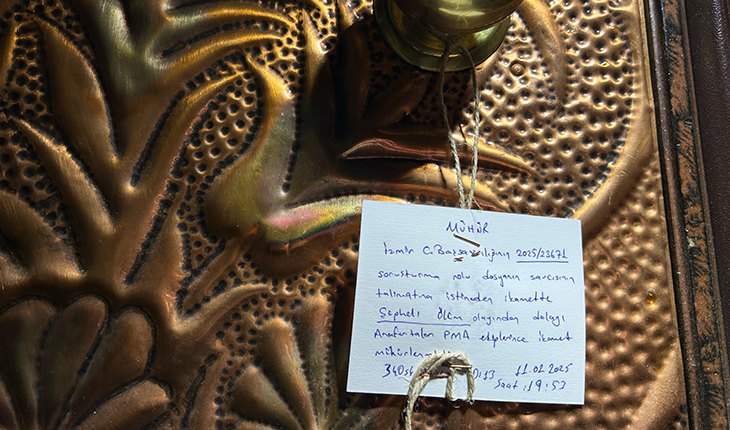 MÜHÜR
İzmir C. Başsavcılığının 2025/23671
soruşturma nolu dosyanın savcısının
talimatına istineden ikamette
Şüpheli Ölüm olayından dolayı
Anafartalar PMA ekiplerince ikamet
11.02.2025
Saat: 19:53